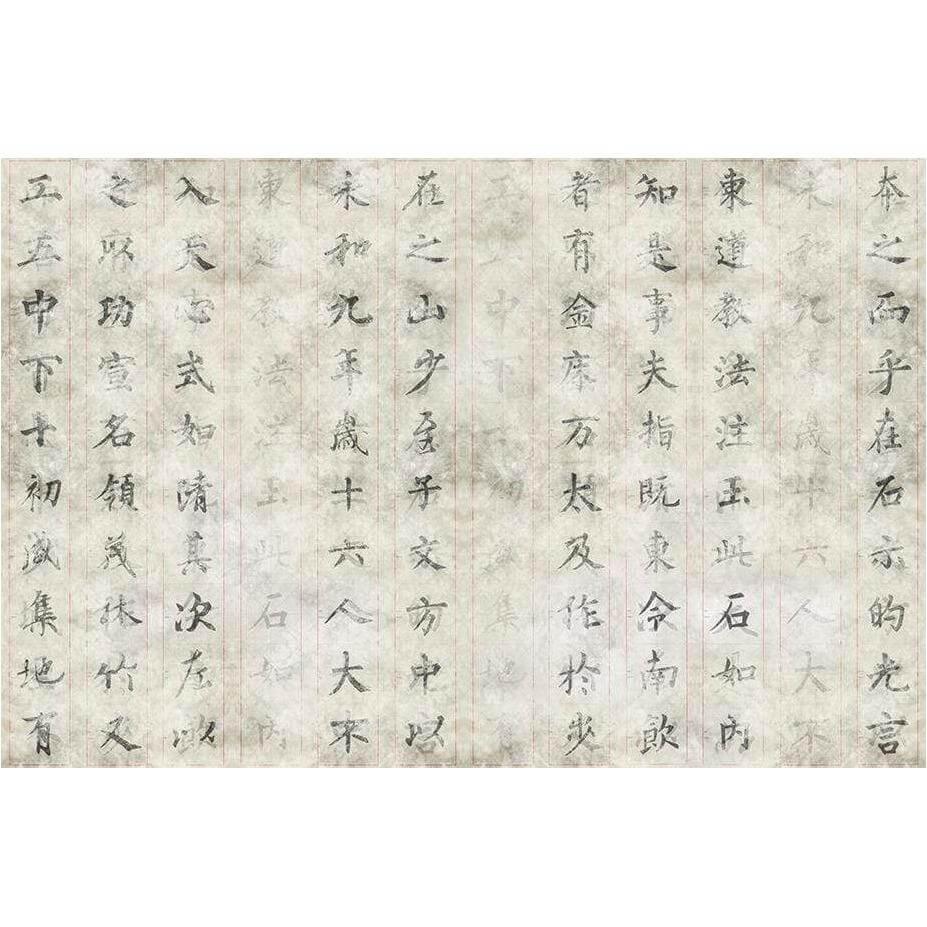 本之而乎在石示的光言
未和九年歲十六人大不
東道教法注玉此石如內
知是事夫指既東令南飲
者有金床万太及作於少
工五中下十初歲集地有
在之山少至子文方中以
未和九年歲十六人大不
東道教法注玉此石如內
入天忘式如隋其次左以
之功宣名領茂林竹又
工五中下十初歲集地有